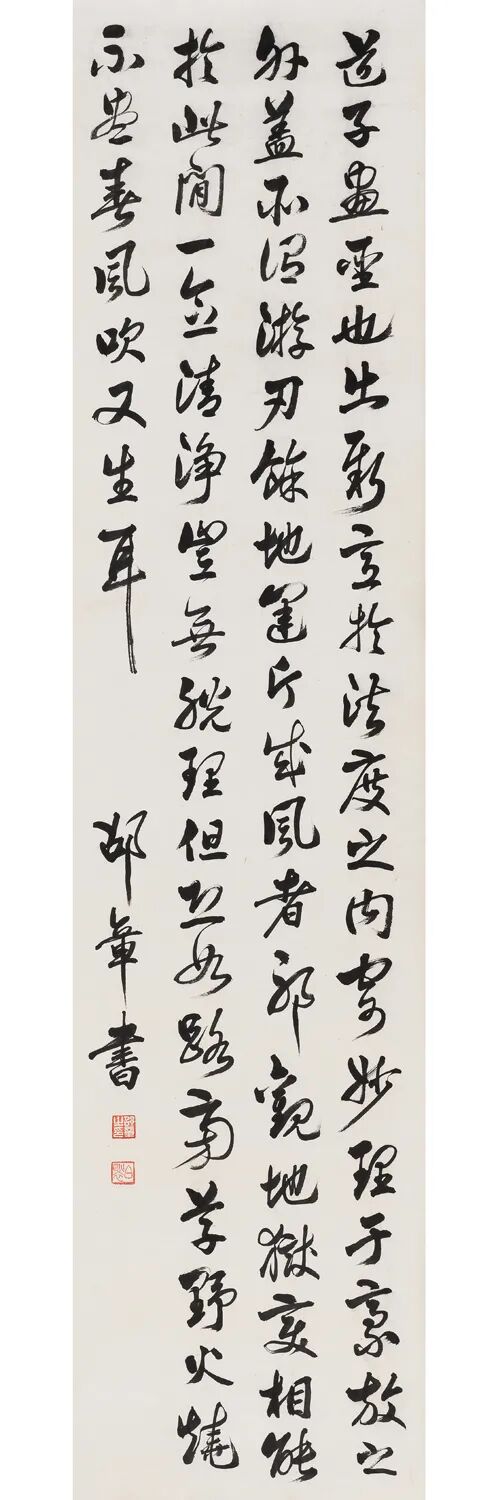 道子畫聖也出新意於法度之內寄妙理于豪放之
外蓋所謂游刃餘地運斤成風者耶觀地獄變相能
於此間一念清淨豈無脫理但恐如路旁草野火燒
不盡春風吹又生耳
邵章書